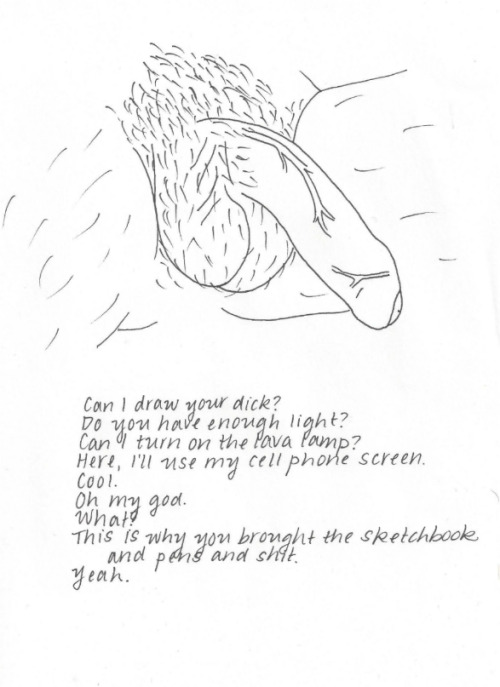 Can I draw your dick?
Do you have enough light?
Can I turn on the lava lamp?
Here, I'll use my cell phone screen.
Cool.
Oh my god.
What?
This is why you brought the sketchbook
and pens and shit.
Yeah.